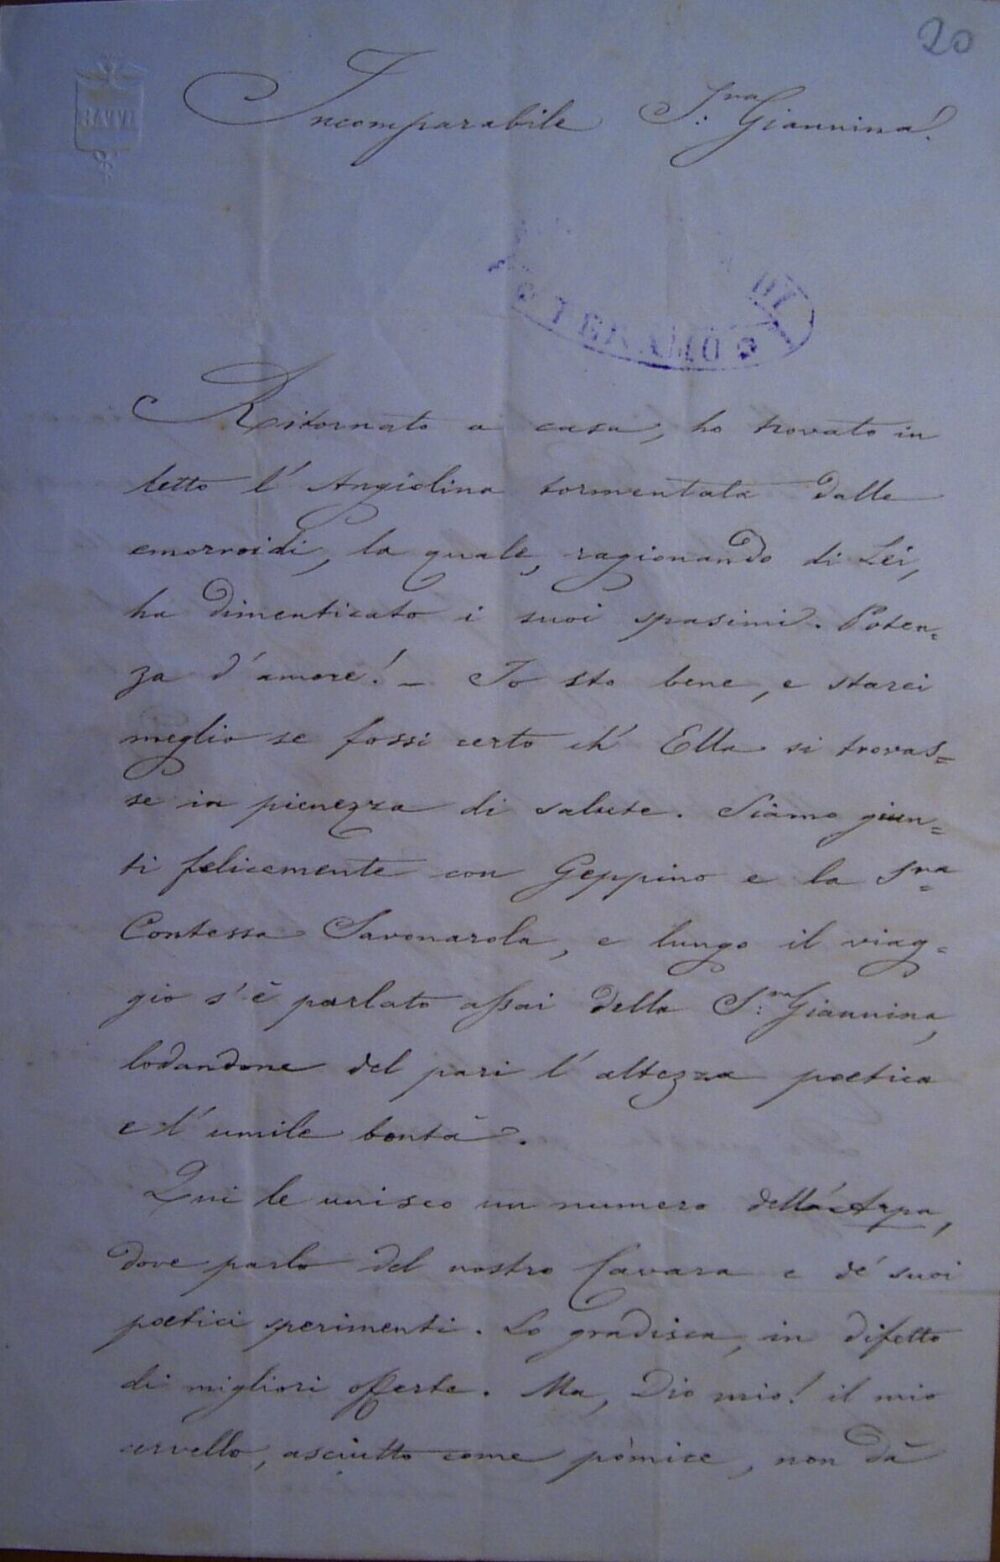 20
BATH
Incomparabile S.ra Giannina!
DI
TERAMO
Ritornato a casa, ho trovato in
letto l'Angiolina tormentata dalle
emorroidi, la quale, ragionando di Lei,
ha dimenticato i suoi spasimi. Poten=
za d'amore! — Io sto bene, e starei
meglio se fossi certo ch'Ella si trovas=
se in pienezza di salute. Siamo giun=
ti felicemente con Geppino e la Sra
Contessa Savonarola, e lungo il viag=
gio s'è parlato assai della S.ra Giannina,
lodandone del pari l'altezza poetica
e l'umile bontà.
Qui le unisco un numero dell'Arpa,
dove parlo del nostro Cavara e de' suoi
poetici sperimenti. Lo gradisca, in difetto
di migliori offerte. Ma, Dio mio! il mio
cervello, asciutto come pòmice, non dà